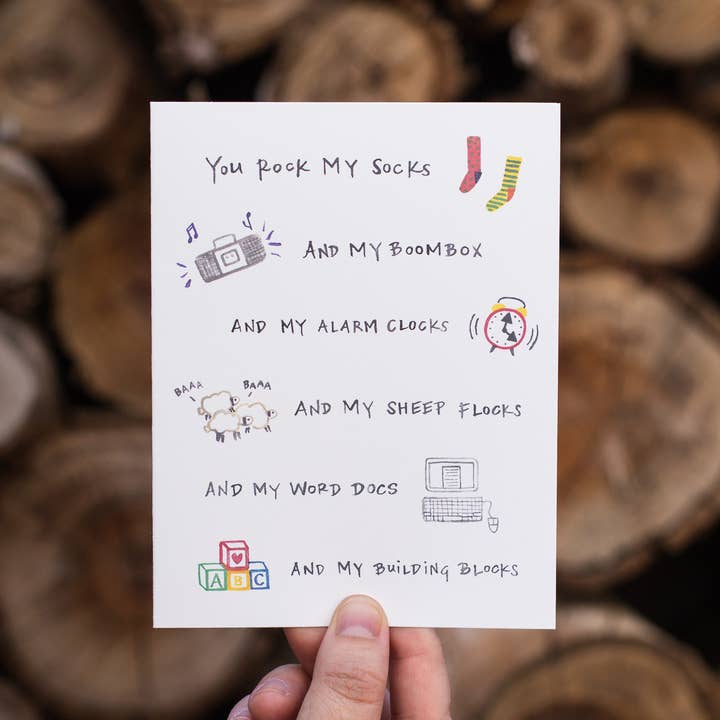 You Rock My Socks
AND MY BOOMBOX
AND MY ALARM CLOCKS
BAAA BAAA
AND MY SHEEP FLOCKS
AND MY WORD DOCS
A B C
AND MY BUILDING BLOCKS